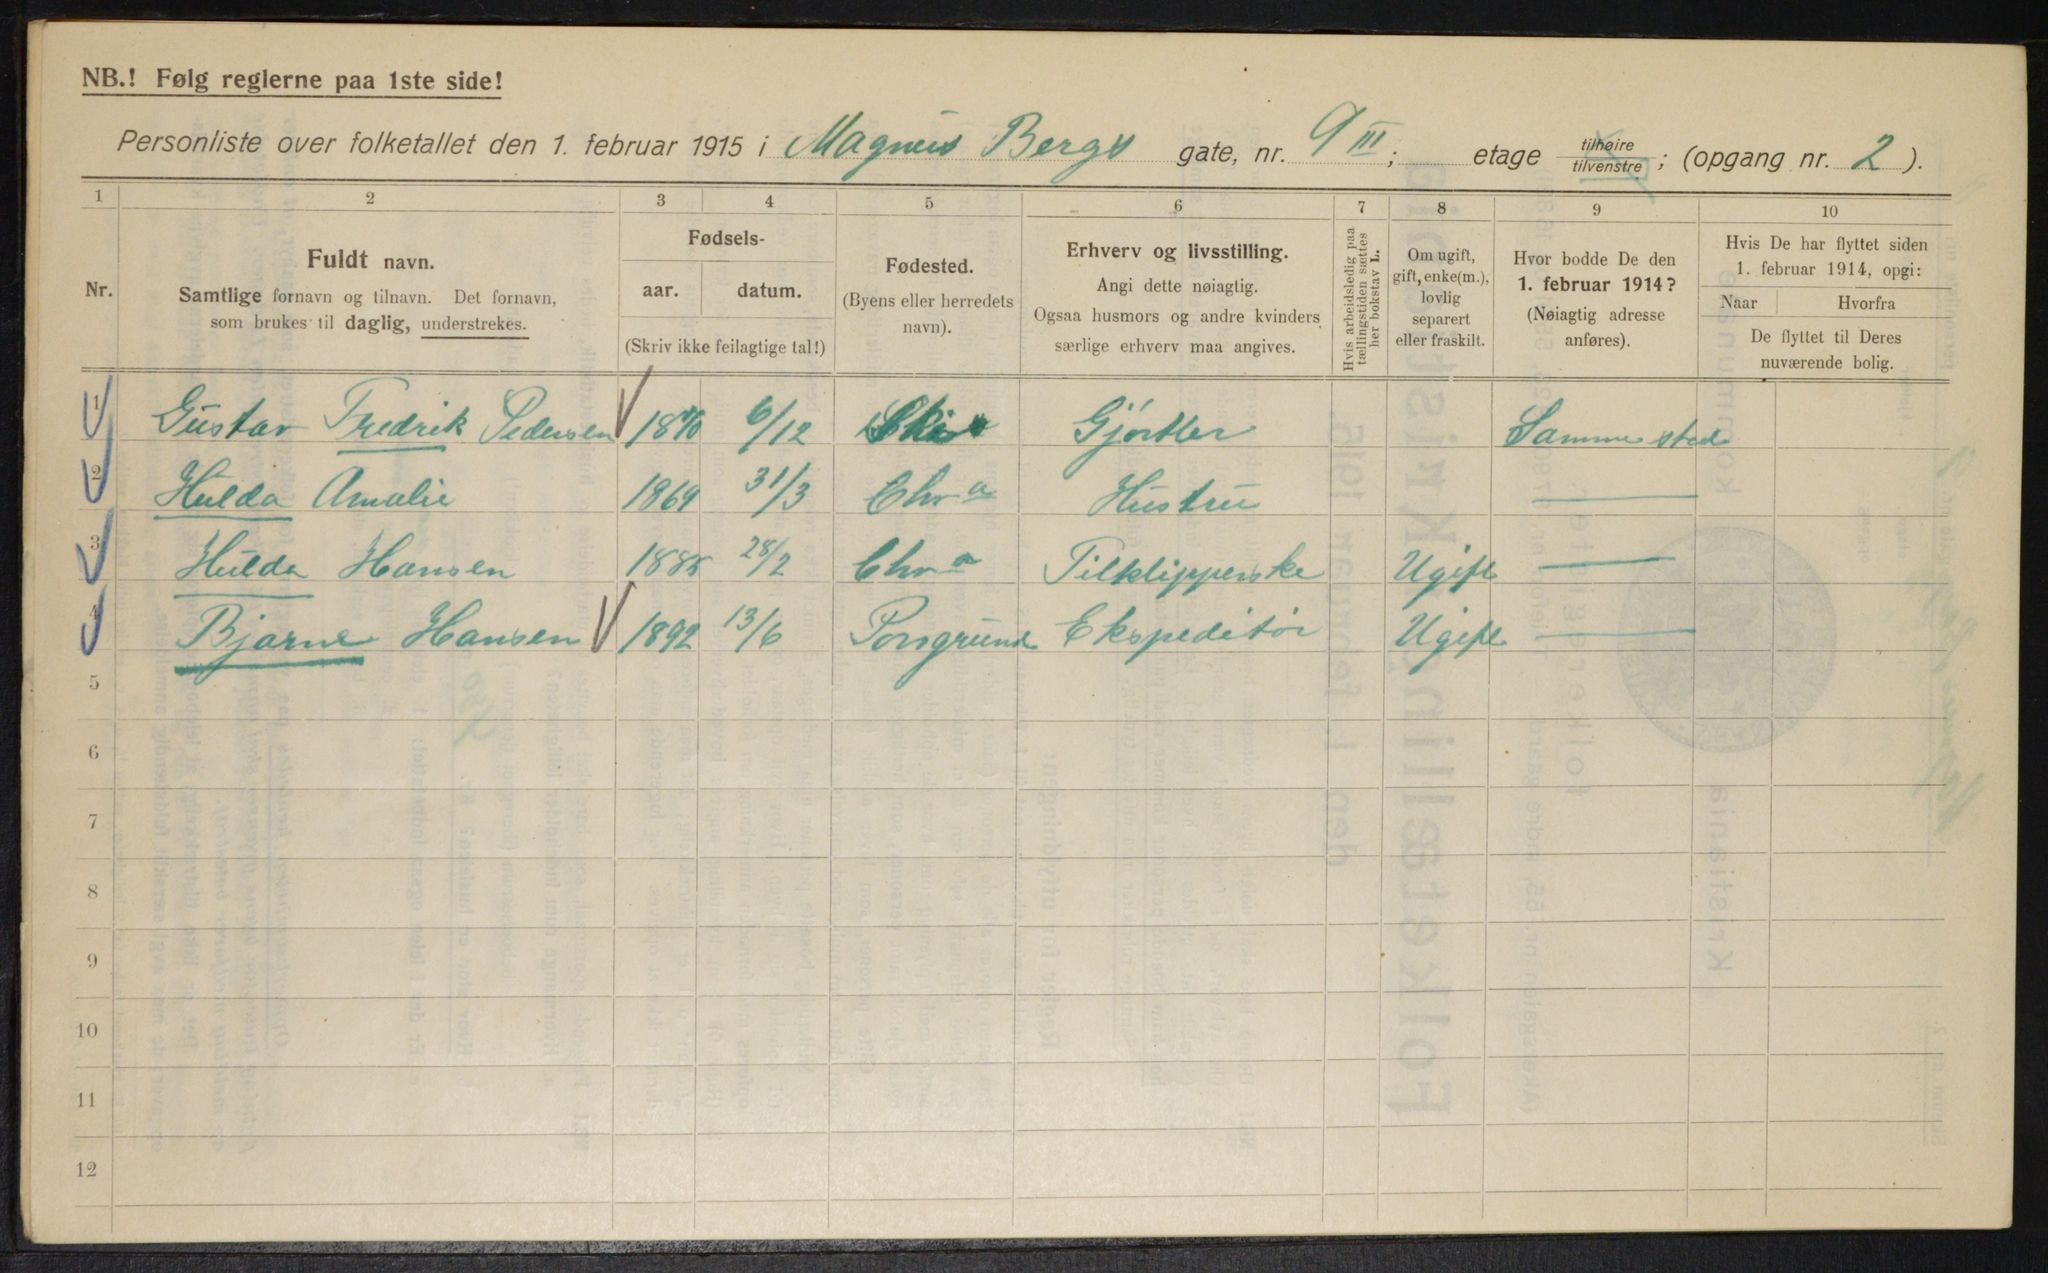 NB.! Følg reglerne paa 1ste side!
Personliste over folketallet den 1. februar 1915 i Magnus Bergs gate, nr. 9 III; etage tilhøire tilvenstre; (opgang nr. 2).
1 2 3 4 5 6 7 8 9 10
Nr.
Fuldt navn.
Samtlige fornavn og tilnavn. Det fornavn,
som brukes til daglig, understrekes.
Fødsels-
aar. datum.
(Skriv ikke feilagtige tal!)
Fødested.
(Byens eller herredets
navn).
Erhverv og livsstilling.
Angi dette nøiagtig.
Ogsaa husmors og andre kvinders
særlige erhverv maa angives.
Hvis arbeidsledig paa
tællingstiden sættes
her bokstav L.
Om ugift,
gift, enke(m.),
lovlig
separert
eller fraskilt.
Hvor bodde De den
1. februar 1914?
(Nøiagtig adresse
anføres).
Hvis De har flyttet siden
1. februar 1914, opgi:
Naar Hvorfra
De flyttet til Deres
nuværende bolig.
1 Gustav Fredrik Pedersen 1870 6/12 Gjørtler Samme sted
2 Hulda Amalie 1869 31/3 Chra Hustru
3 Hulda Hansen 1885 28/2 Chra Tilklipperske Ugift
4 Bjarne Hansen 1892 13/6 Porsgrund Ekspeditør Ugift
5
6
7
8
9
10
11
12